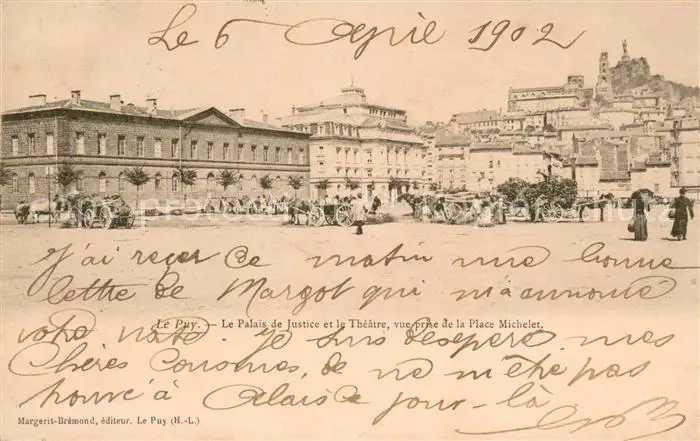 Le 6 Avril 1902
J'ai reçu ce matin une bonne
lettre de Margot qui m'annonce
Le Puy. — Le Palais de Justice et le Théâtre, vue prise de la Place Michelet.
votre visite. Je suis désespéré, mes
Chères Cousines, de ne m'être pas
trouvé à Calais ce jour-là
Margerit-Brémond, éditeur. Le Puy (H.-L.)